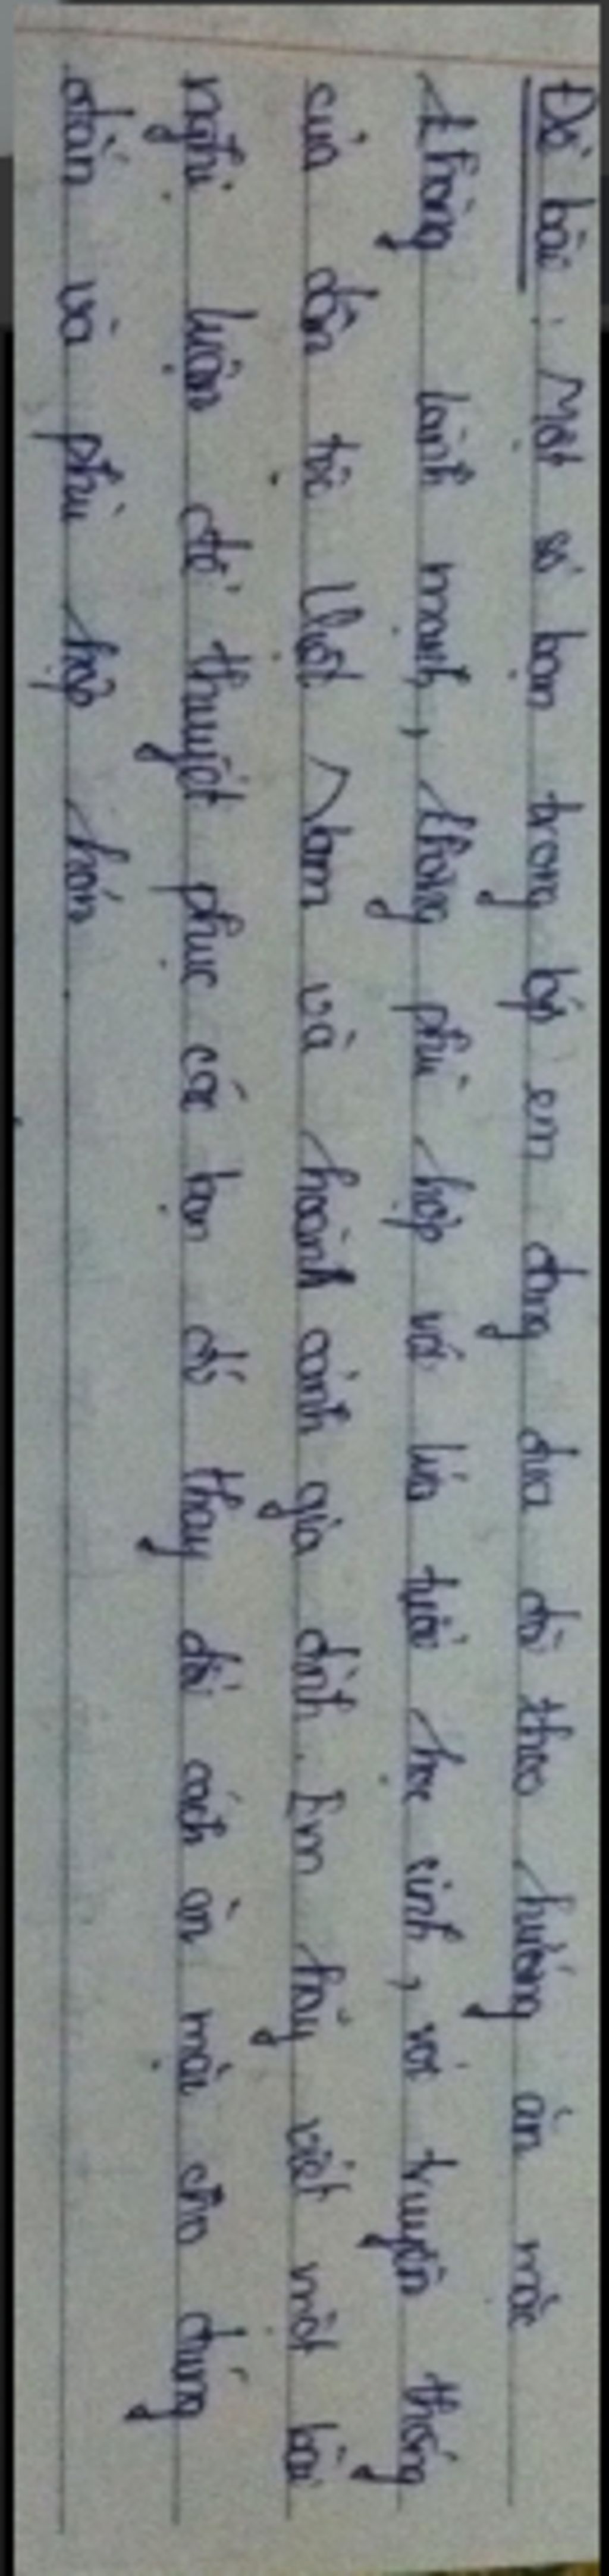 Đề bài: Một số bạn trong lớp em đang đua đòi theo hướng ăn mặc
không lành mạnh, không phù hợp với lứa tuổi học sinh, với truyền thống
của dân tộc Việt Nam và hoành cảnh gia đình. Em hãy viết một bài
nghị luận để thuyết phục các bạn đó thay đổi cách ăn mặc cho đúng
đắn và phù hợp hơn.